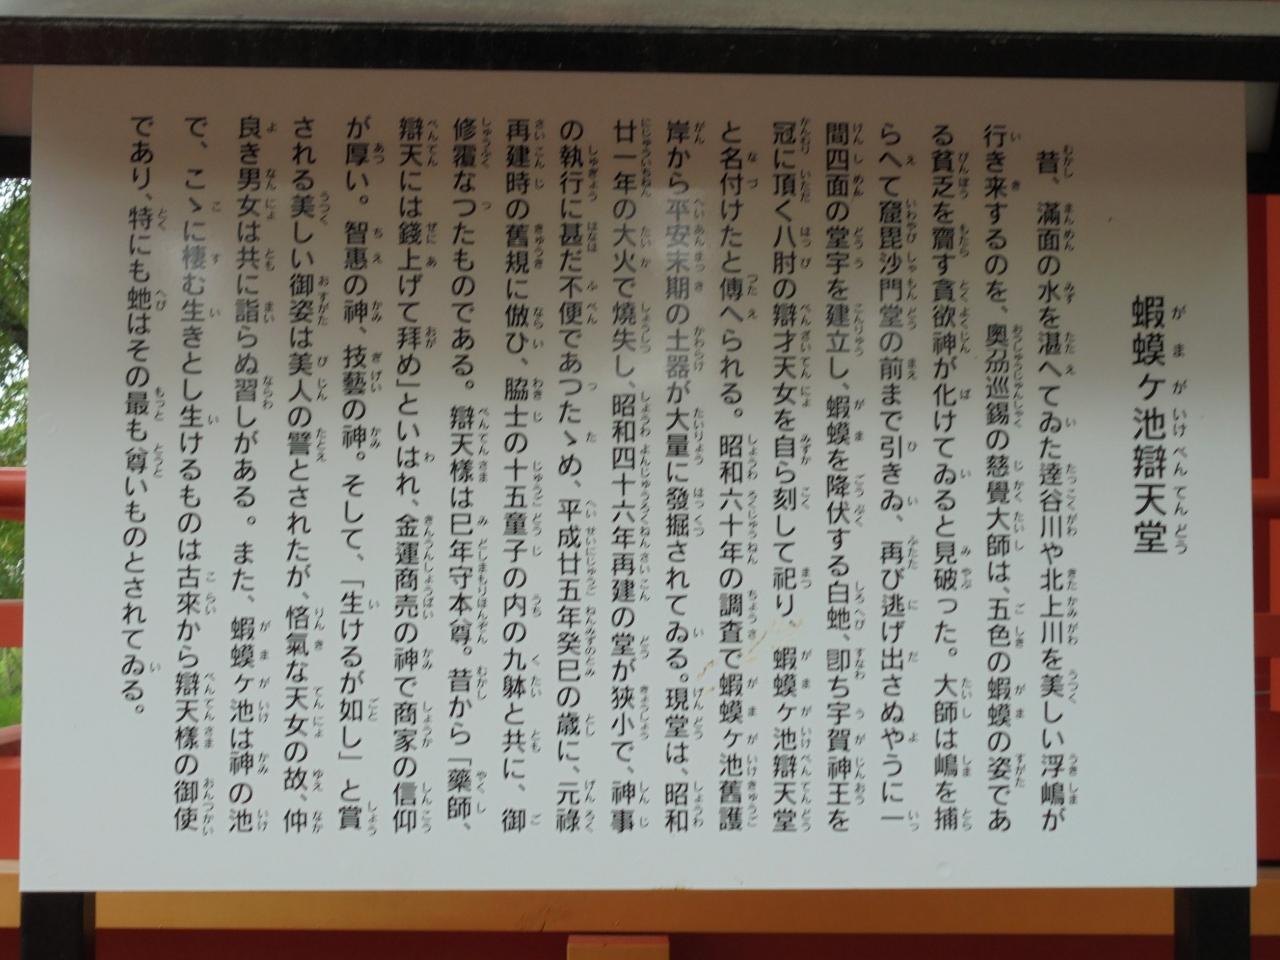 蝦蟆ケ池辯天堂
昔、滿面の水を湛へてゐた達谷川や北上川を美しい浮嶋が
行き来するのを、奧刕巡錫の慈覺大師は、五色の蝦蟆の姿であ
る貧乏を齎す貪欲神が化けてゐると見破った。大師は嶋を捕
らへて窟毘沙門堂の前まで引きゐ、再び逃げ出さぬやうに一
間四面の堂宇を建立し、蝦蟆を降伏する白虵、卽ち宇賀神王を
冠に頂く八肘の辯才天女を自ら刻して祀り、蝦蟆ケ池辯天堂
と名付けたと傳へられる。昭和六十年の調査で蝦蟆ケ池舊護
岸から平安末期の土器が大量に發掘されてゐる。現堂は、昭和
廿一年の大火で燒失し、昭和四十六年再建の堂が狹小で、神事
の執行に甚だ不便であつたゝめ、平成廿五年癸巳の歳に、元祿
再建時の舊規に倣ひ、脇士の十五童子の内の九躰と共に、御
修覆なつたものである。辯天樣は巳年守本尊。昔から「藥師、
辯天には錢上げて拜め」といはれ、金運商売の神で商家の信仰
が厚い。智惠の神、技藝の神。そして、「生けるが如し」と賞
される美しい御姿は美人の譬とされたが、悋氣な天女の故、仲
良き男女は共に詣らぬ習しがある。また、蝦蟆ケ池は神の池
で、こゝに棲む生きとし生けるものは古來から辯天樣の御使
であり、特にも虵はその最も尊いものとされてゐる。